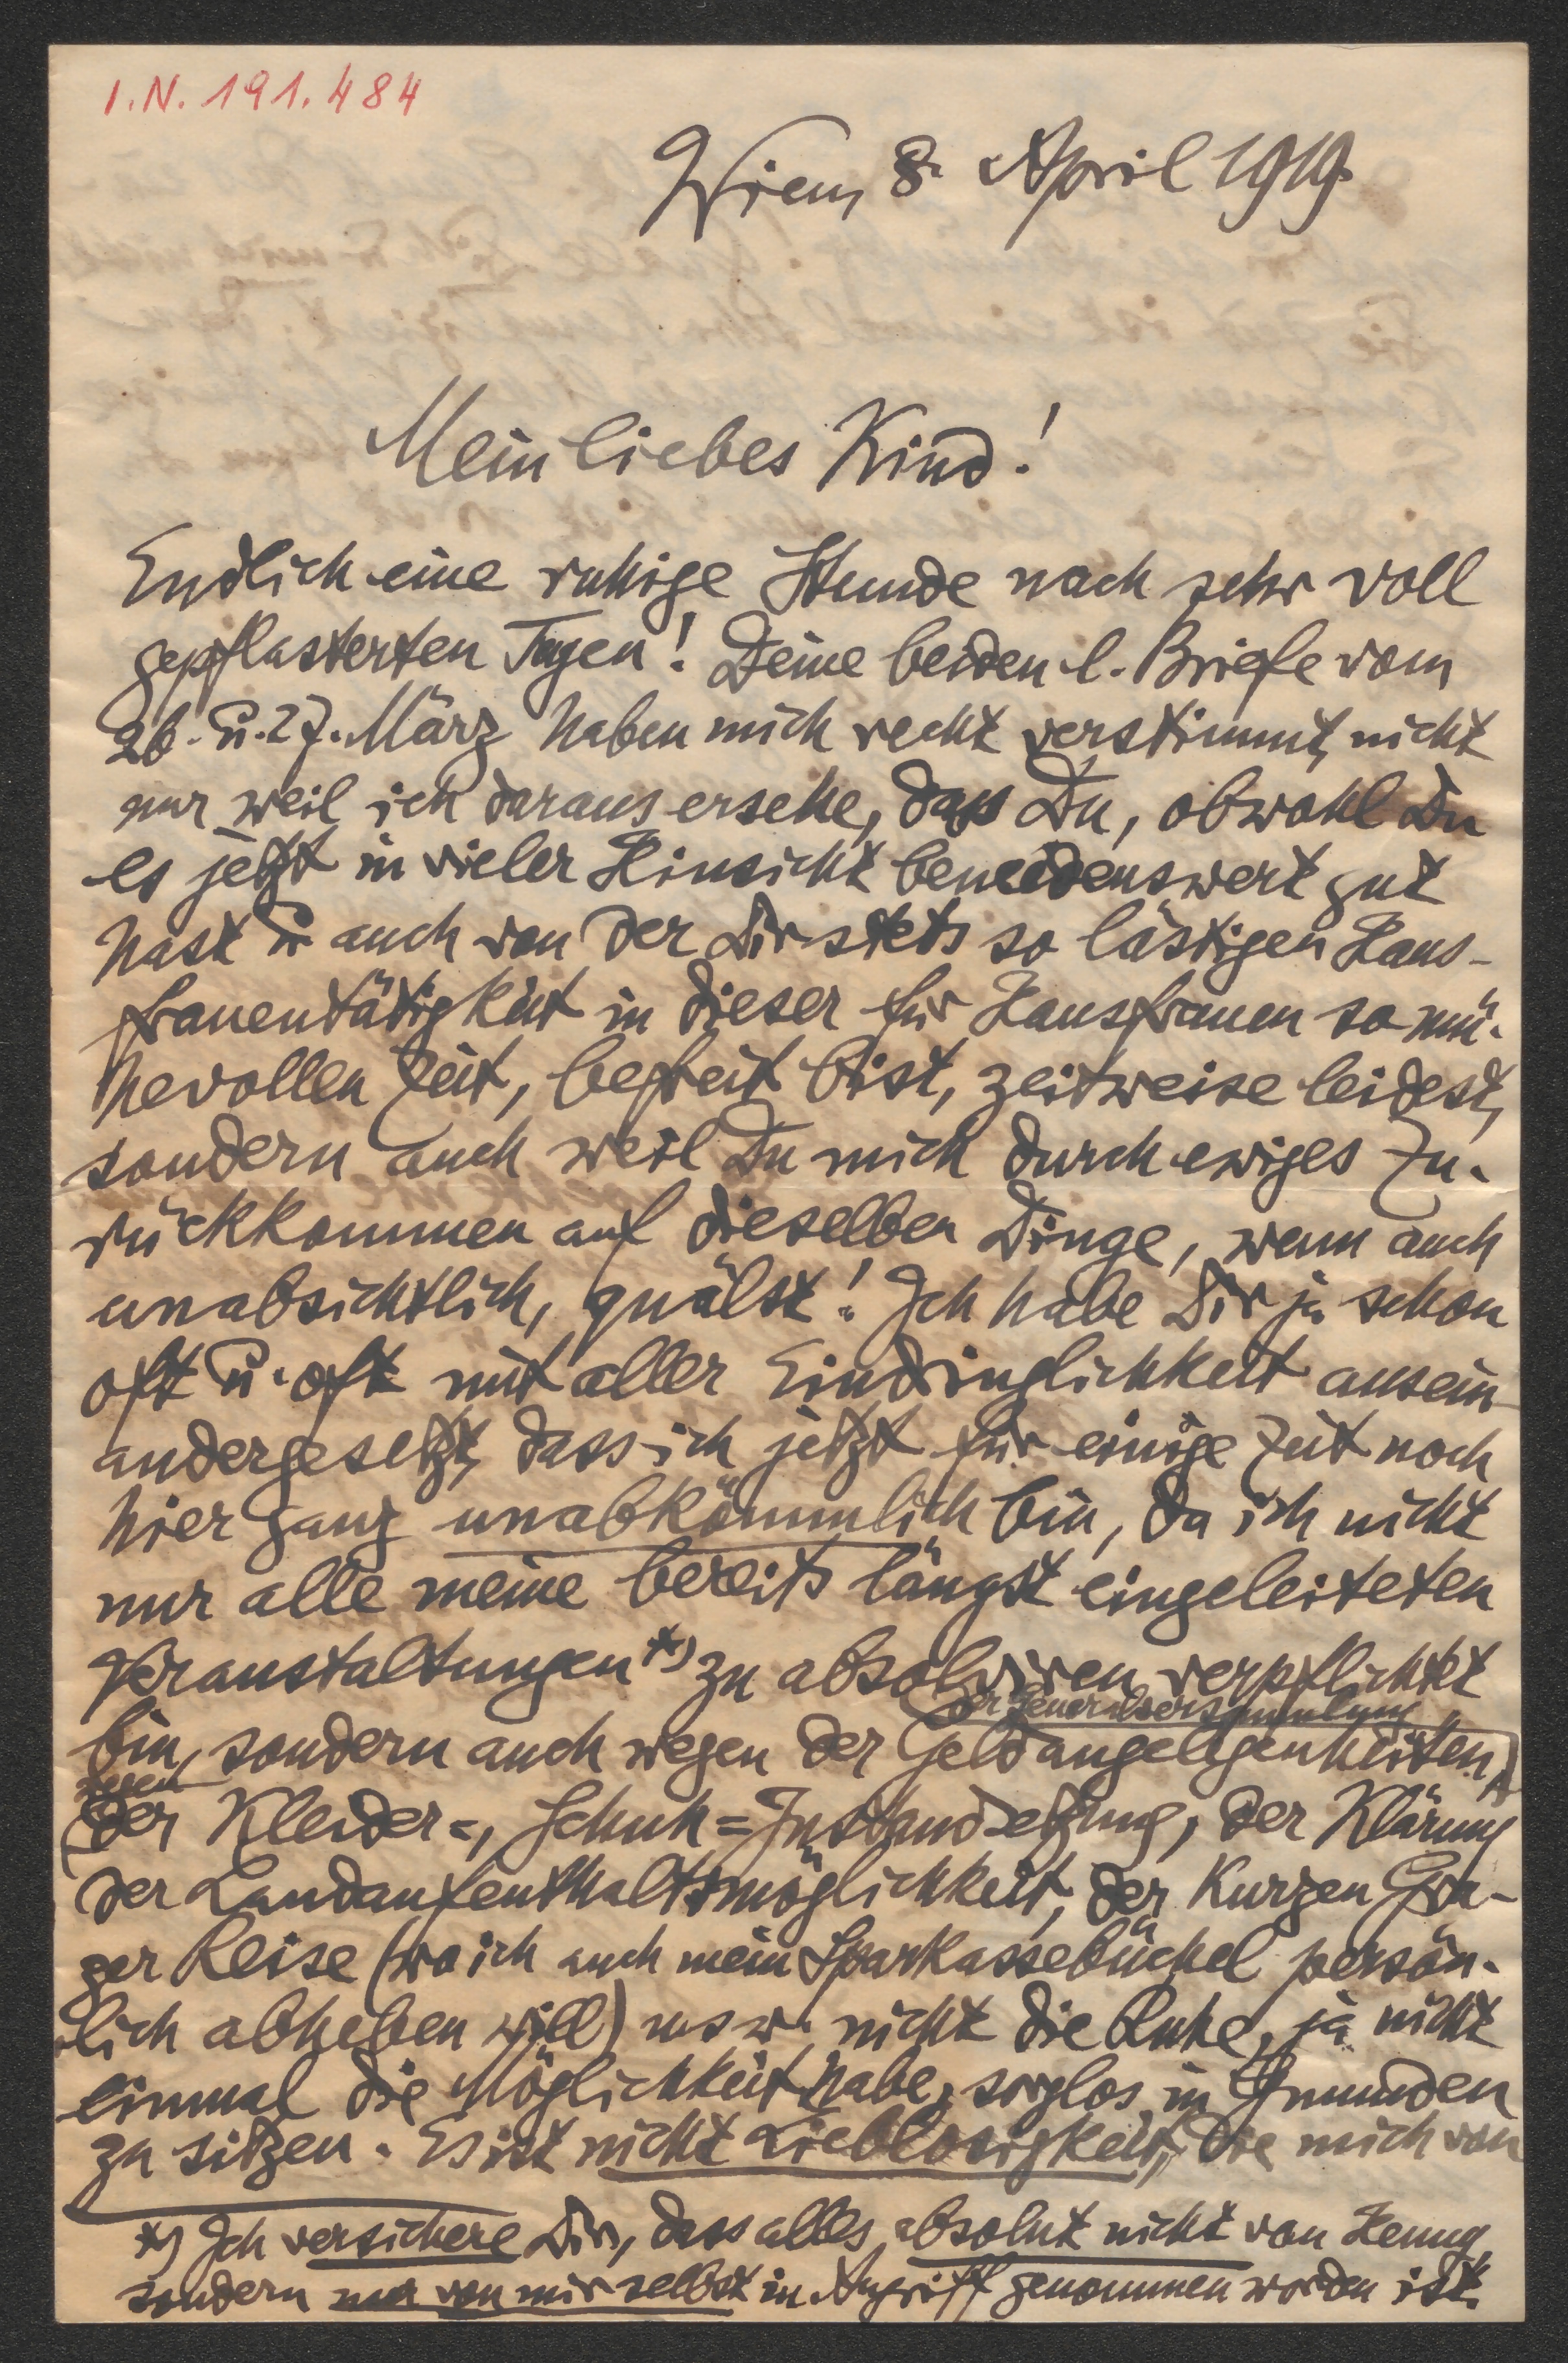 I.N. 191.484
Wien, 8. April 1919.
Mein liebes Kind!
Endlich eine ruhige Stunde nach sehr voll
gepflasterten Tagen! Deine beiden l. Briefe vom
26. u. 27. März haben mich recht verstimmt, nicht
nur weil ich daraus ersehe, dass Du, obwohl Du
es jetzt in vieler Hinsicht beneidenswert gut
hast u auch von der Dir stets so lästigen Haus-
frauentätigkeit in dieser für Hausfrauen so mü-
hevollen Zeit, befreit bist, zeitweise leidest,
sondern auch weil Du mich durch ewiges Zu-
rückkommen auf dieselben Dinge, wenn auch
unabsichtlich, quälst! Ich habe Dir ja schon
oft u. oft mit aller Eindringlichkeit ausein-
andergesetzt, dass ich jetzt für einige Zeit noch
hier ganz unabkömmlich bin, da ich nicht
nur alle meine bereits längst eingeleiteten
Veranstaltungen *) zu absolviren verpflichtet
der Generalversammlung
bin, sondern auch wegen der Geldangelegenheiten,
wegen
der Kleider-, Schuh-Instandsetzung, der Klärung
der Landaufenthaltsmöglichkeit, der kurzen Gra-
zer Reise (wo ich auch mein Sparkassebüchel persön-
lich abheben will) usw. nicht die Ruhe, ja nicht
einmal die Möglichkeit habe, sorglos in Gmunden
zu sitzen. Es ist nicht Lieblosigkeit, die mich von
*) Ich versichere Dir, dass alles absolut nicht von Henny,
sondern nur von mir selbst in Angriff genommen worden ist.